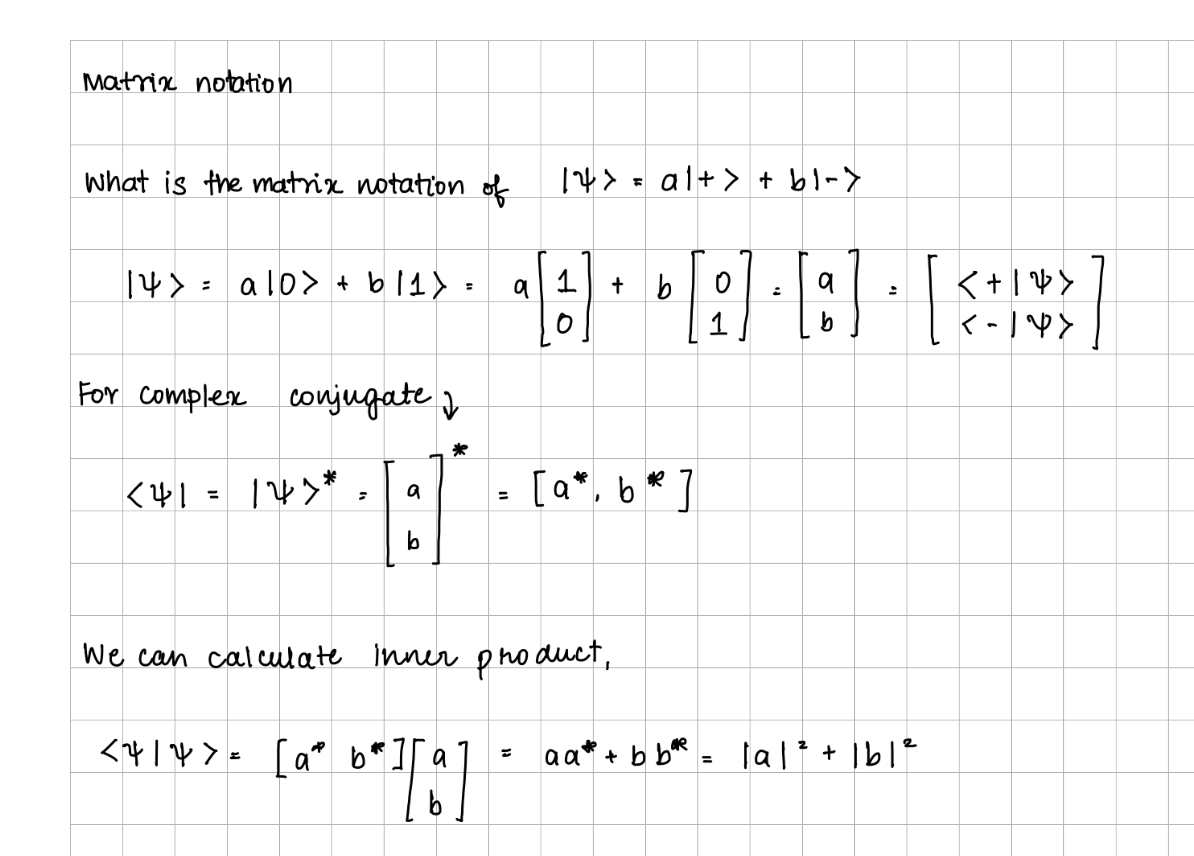 Matrix notation
What is the matrix notation of |ψ> = a|+> + b|->
|ψ> = a|0> + b|1> = a [1 0] + b [0 1] = [a b] = [<+|ψ> <-|ψ>]
For complex conjugate ↓
<ψ| = |ψ>* = [a b]* = [a*, b*]
We can calculate inner product,
<ψ|ψ> = [a* b*][a b] = aa* + bb* = |a|² + |b|²